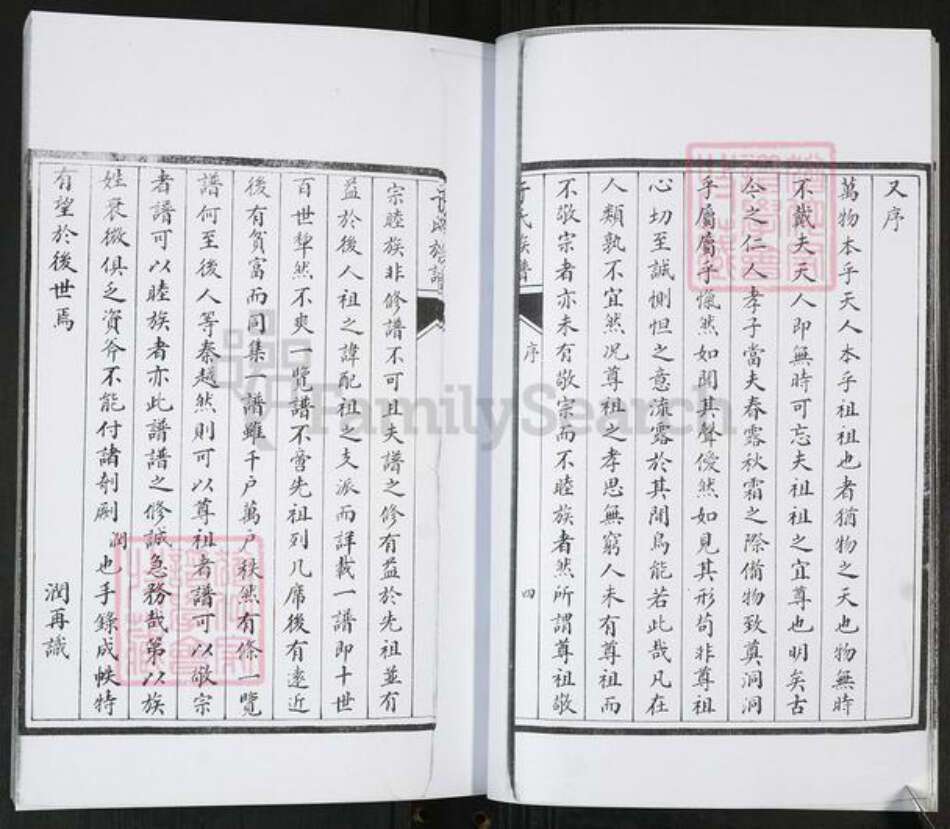 又序
萬物本乎天人本乎祖祖也者猶物之天也物無時
不戴夫天人即無時可忘夫祖祖之宜尊也明矣古
今之仁人孝子當夫春露秋霜之際備物致奠洞洞
乎屬屬乎愾然如聞其聲僾然如見其形苟非尊祖
心切至誠惻怛之意流露於其間烏能若此哉凡在
人類孰不宜然況尊祖之孝思無窮人未有尊祖而
不敬宗者亦未有敬宗而不睦族者然所謂尊祖敬
氏族譜
序
四
宗睦族非修譜不可且夫譜之修有益於先祖並有
益於後人祖之諱配祖之支派而詳載一譜即十世
百世犂然不爽一覽譜不啻先祖列几席後有遠近
後有貧富而同集一譜雖千户萬户秩然有條一覽
譜何至後人等秦越然則可以尊祖者譜可以敬宗
者譜可以睦族者亦此譜譜之修誠急務哉第以族
姓衰微俱乏資斧不能付諸剞劂潤也手錄成帙特
有望於後世焉
潤再識
FamilySearch